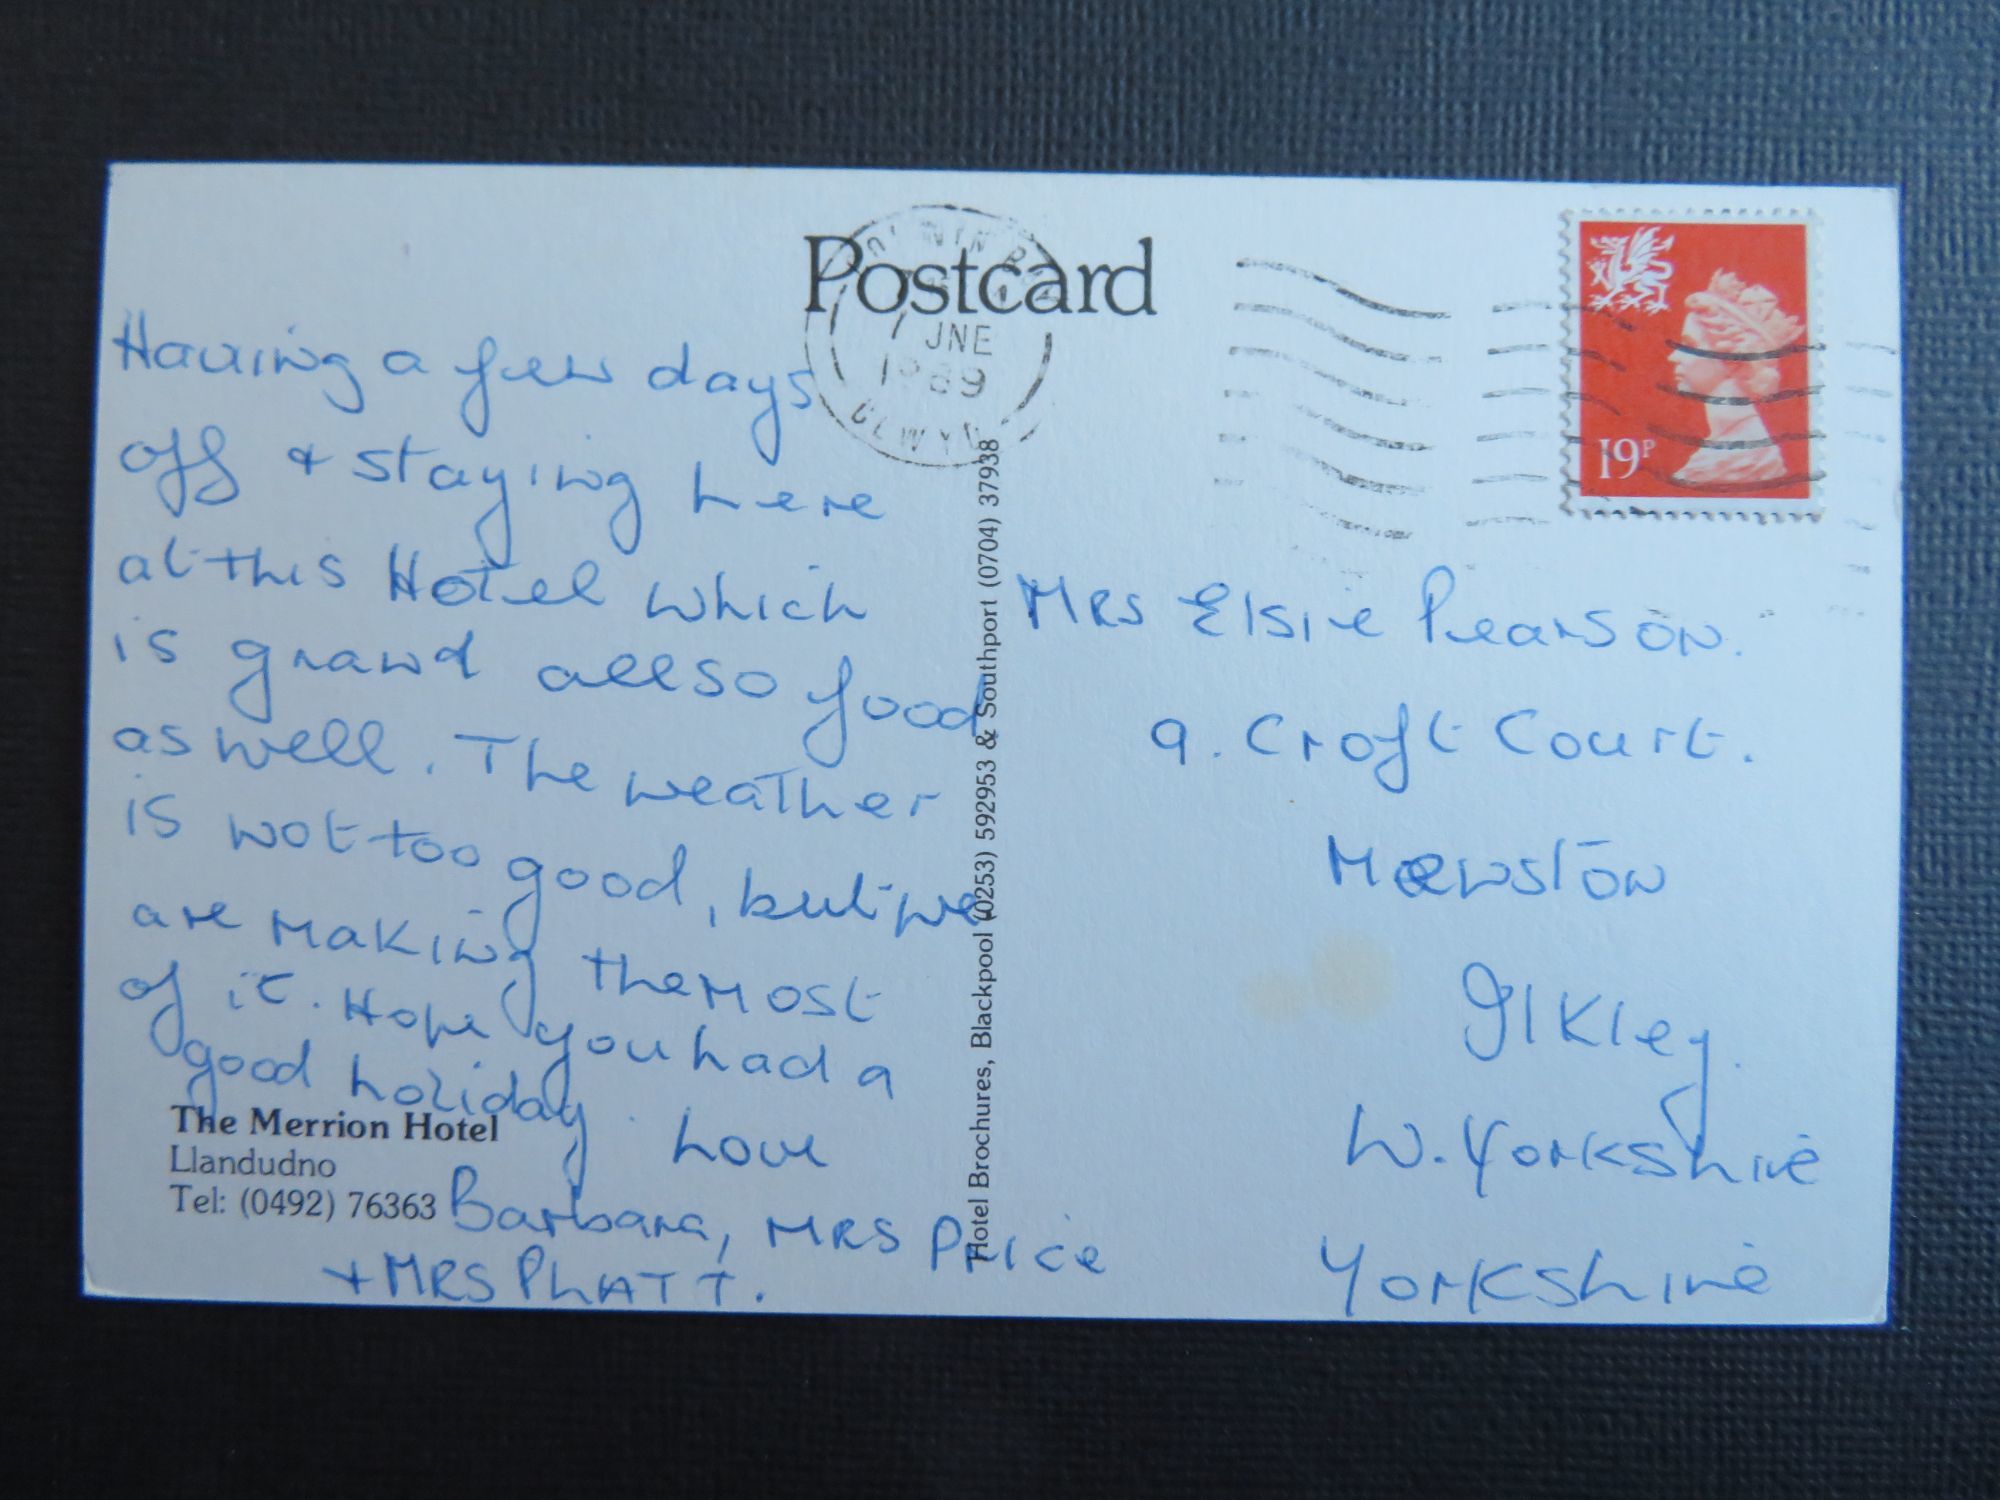 Postcard
JNE
1989
CLWYD
19P
Having a few days
off + staying here
at this Hotel which
is grand allso food
as well. The weather
is not too good, but we
are making the most
of it. Hope you had a
good holiday. Love
Barbara, MRS Price
+ MRS PLATT.
The Merrion Hotel
Llandudno
Tel: (0492) 76363
Hotel Brochures, Blackpool (0253) 592953 & Southport (0704) 37938
MRS Elsie Pearson.
9. Croft Court.
Menston
Ilkley.
W. Yorkshire
Yorkshire